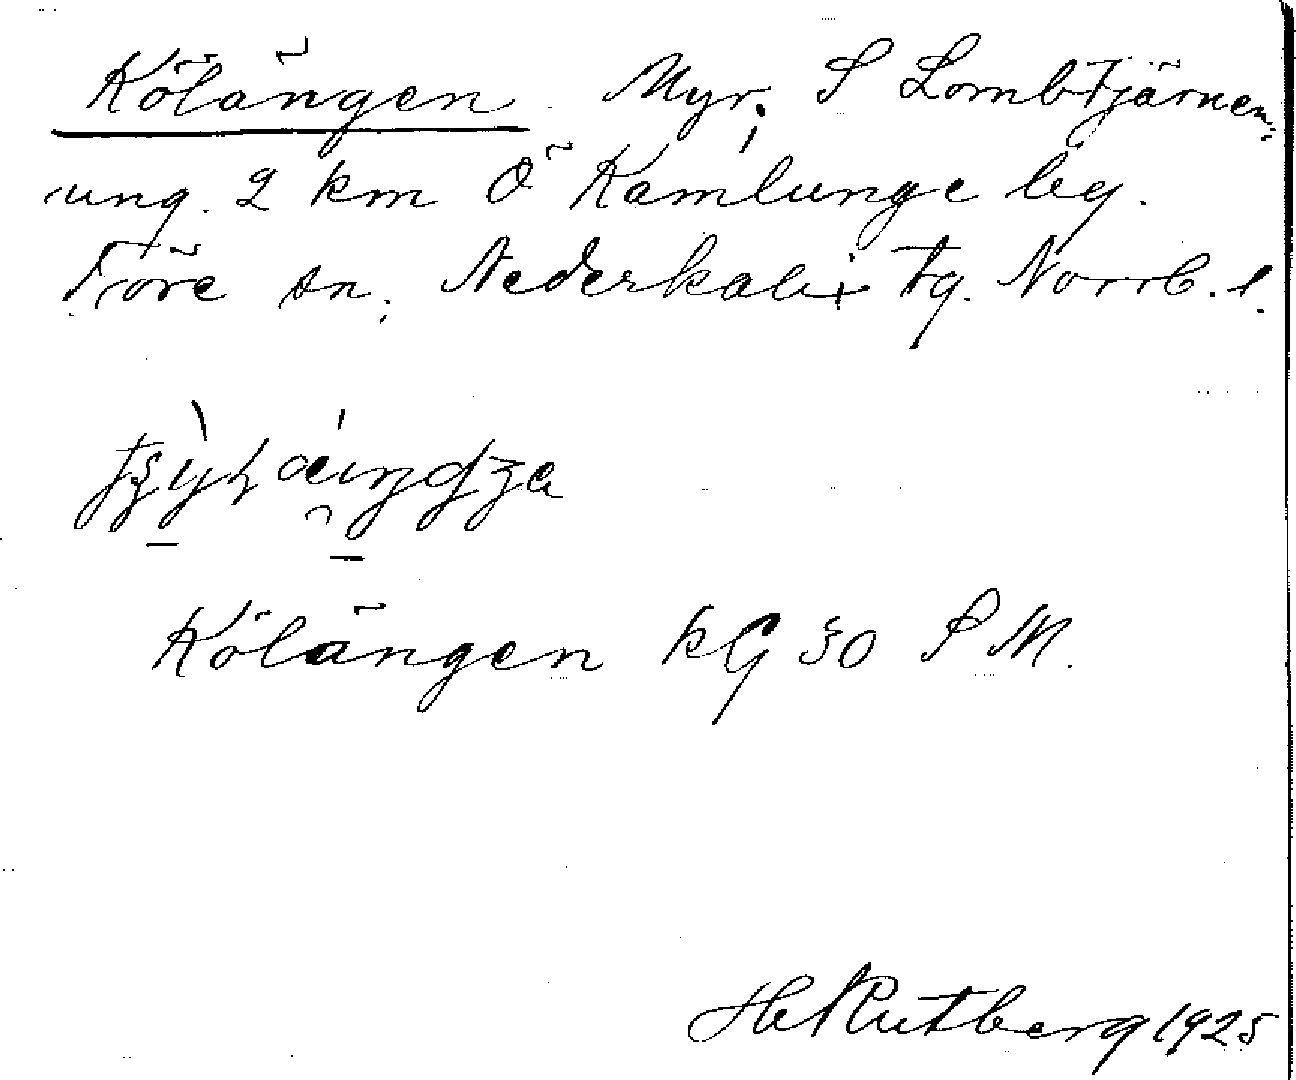 Kölängen. Myr; S Lombtjärnen;
ung. 2 km Ö Kamlunge by.
Töre sn, Nederkalix tg. Norrb. l.
Kölängen kG 30 S M.
H Rutberg 1925